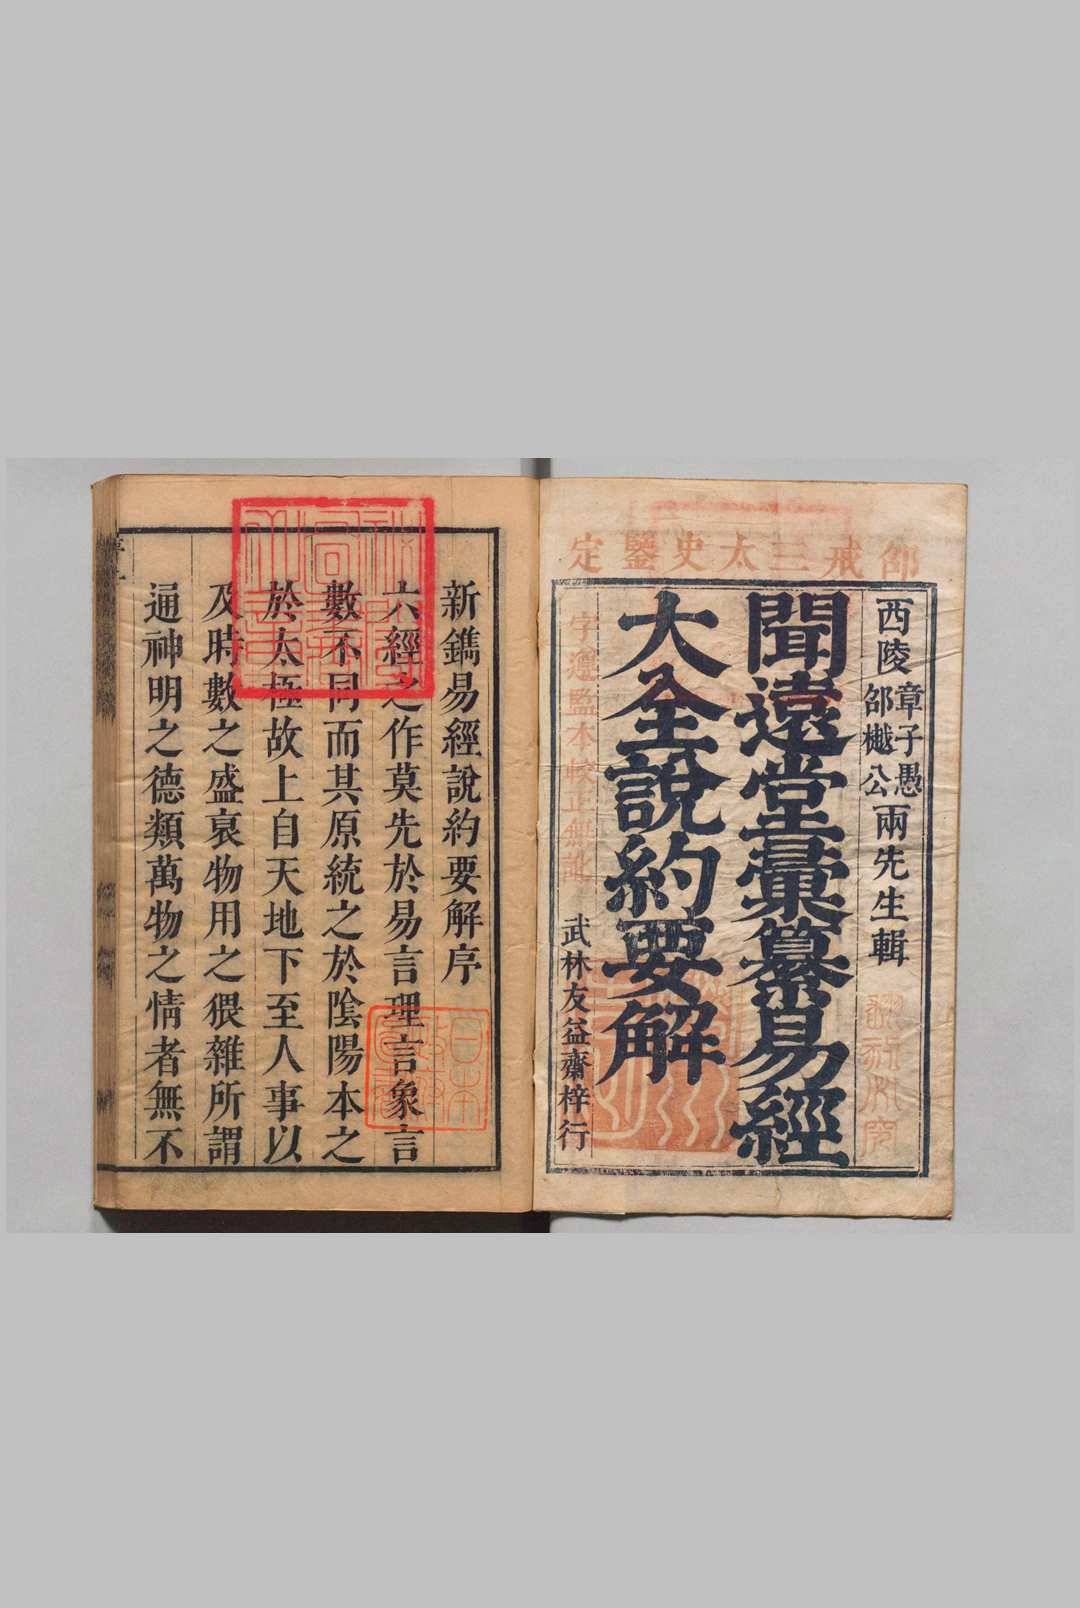 邵戒三太史鑒定
西陵章子愚邵樾公兩先生輯
聞遠堂彙纂易經
大全說約要解
字遵監本較正無訛
武林友益齋梓行
新鐫易經說約要解序
六經之作莫先於易言理言象言
數不同而其原統之於陰陽本之
於太極故上自天地下至人事以
及時數之盛衰物用之猥雜所謂
通神明之德類萬物之情者無不